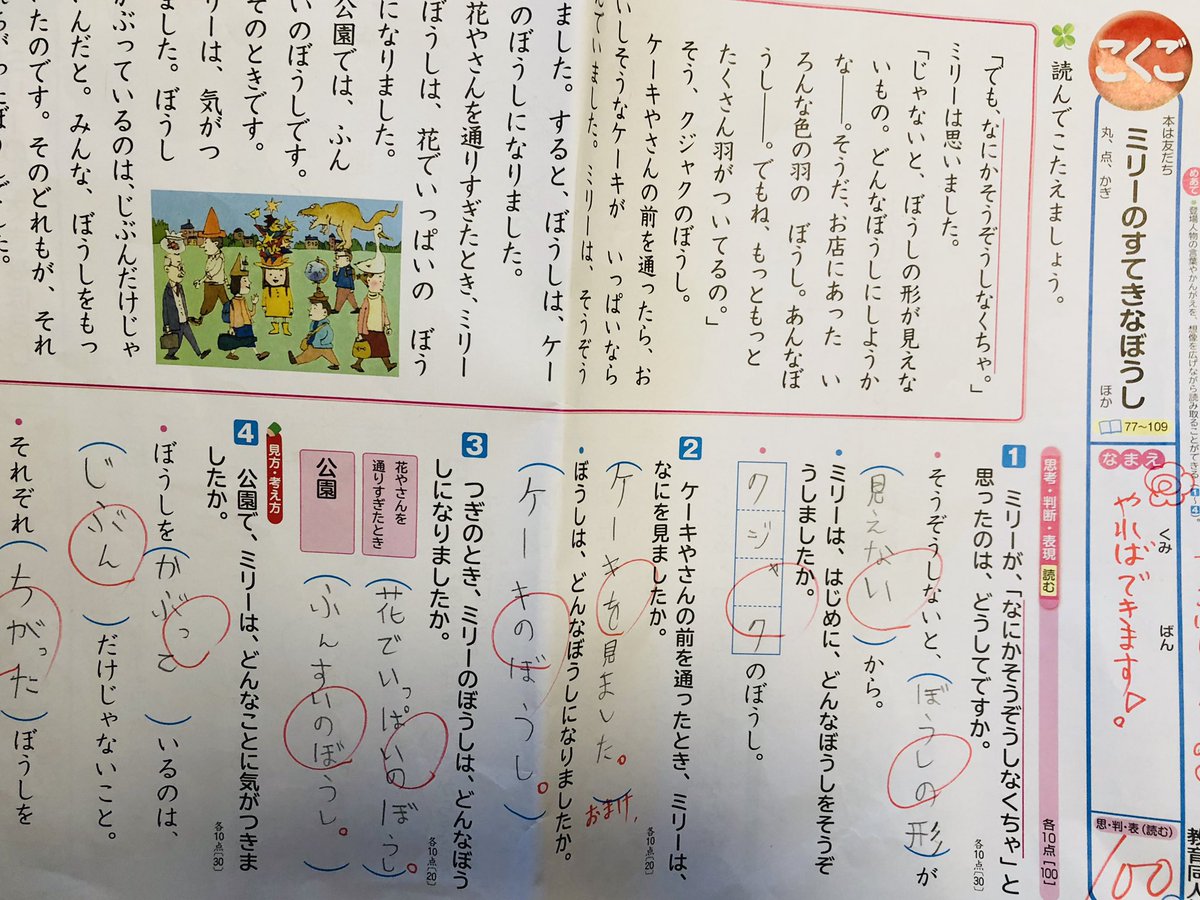 こくご
本は友だち
丸、点、かぎ
ミリーのすてきなぼうし
ほか
77〜109
めあて
なまえ
くみ
ばん
やればできます!
思・判・表(読む)
100
教育同人
読んでこたえましょう。
「でも、なにかそうぞうしなくちゃ。」
ミリーは思いました。
「じゃないと、ぼうしの形が見えな
いもの。どんなぼうしにしようか
な――。そうだ、お店にあった い
ろんな色の羽の ぼうし。あんなぼ
うし――。でもね、もっともっと
たくさん羽がついてるの。」
そう、クジャクのぼうし。
ケーキやさんの前を通ったら、お
いしそうなケーキが いっぱいなら
んでいました。ミリーは、そうぞう
しました。すると、ぼうしは、ケー
キのぼうしになりました。
花やさんを通りすぎたとき、ミリー
のぼうしは、花でいっぱいの ぼう
しになりました。
公園では、ふん
すいのぼうしです。
そのときです。
ミリーは、気がつ
きました。ぼうし
をかぶっているのは、じぶんだけじゃ
ないんだと。みんな、ぼうしをもっ
ていたのです。そのどれもが、それ
思考・判断・表現
読む
各10点[100]
1 ミリーが、「なにかそうぞうしなくちゃ」と
思ったのは、どうしてですか。
各10点[30]
そうぞうしないと、(ぼうしの形)が
(見えない)から。
ミリーは、はじめに、どんなぼうしをそうぞ
うしましたか。
クジャクのぼうし。
2 ケーキやさんの前を通ったとき、ミリーは、
なにを見ましたか。
各10点[20]
(ケーキを見ました。)
おまけ
ぼうしは、どんなぼうしになりましたか。
(ケーキのぼうし。)
3 つぎのとき、ミリーのぼうしは、どんなぼう
しになりましたか。
各10点[20]
花やさんを
通りすぎたとき
(花でいっぱいのぼうし。)
公園
(ふんすいのぼうし。)
見方・考え方
4 公園で、ミリーは、どんなことに気がつきま
したか。
各10点[30]
ぼうしを(かぶって)いるのは、
(じぶん)だけじゃないこと。
それぞれ(ちがった)ぼうしを